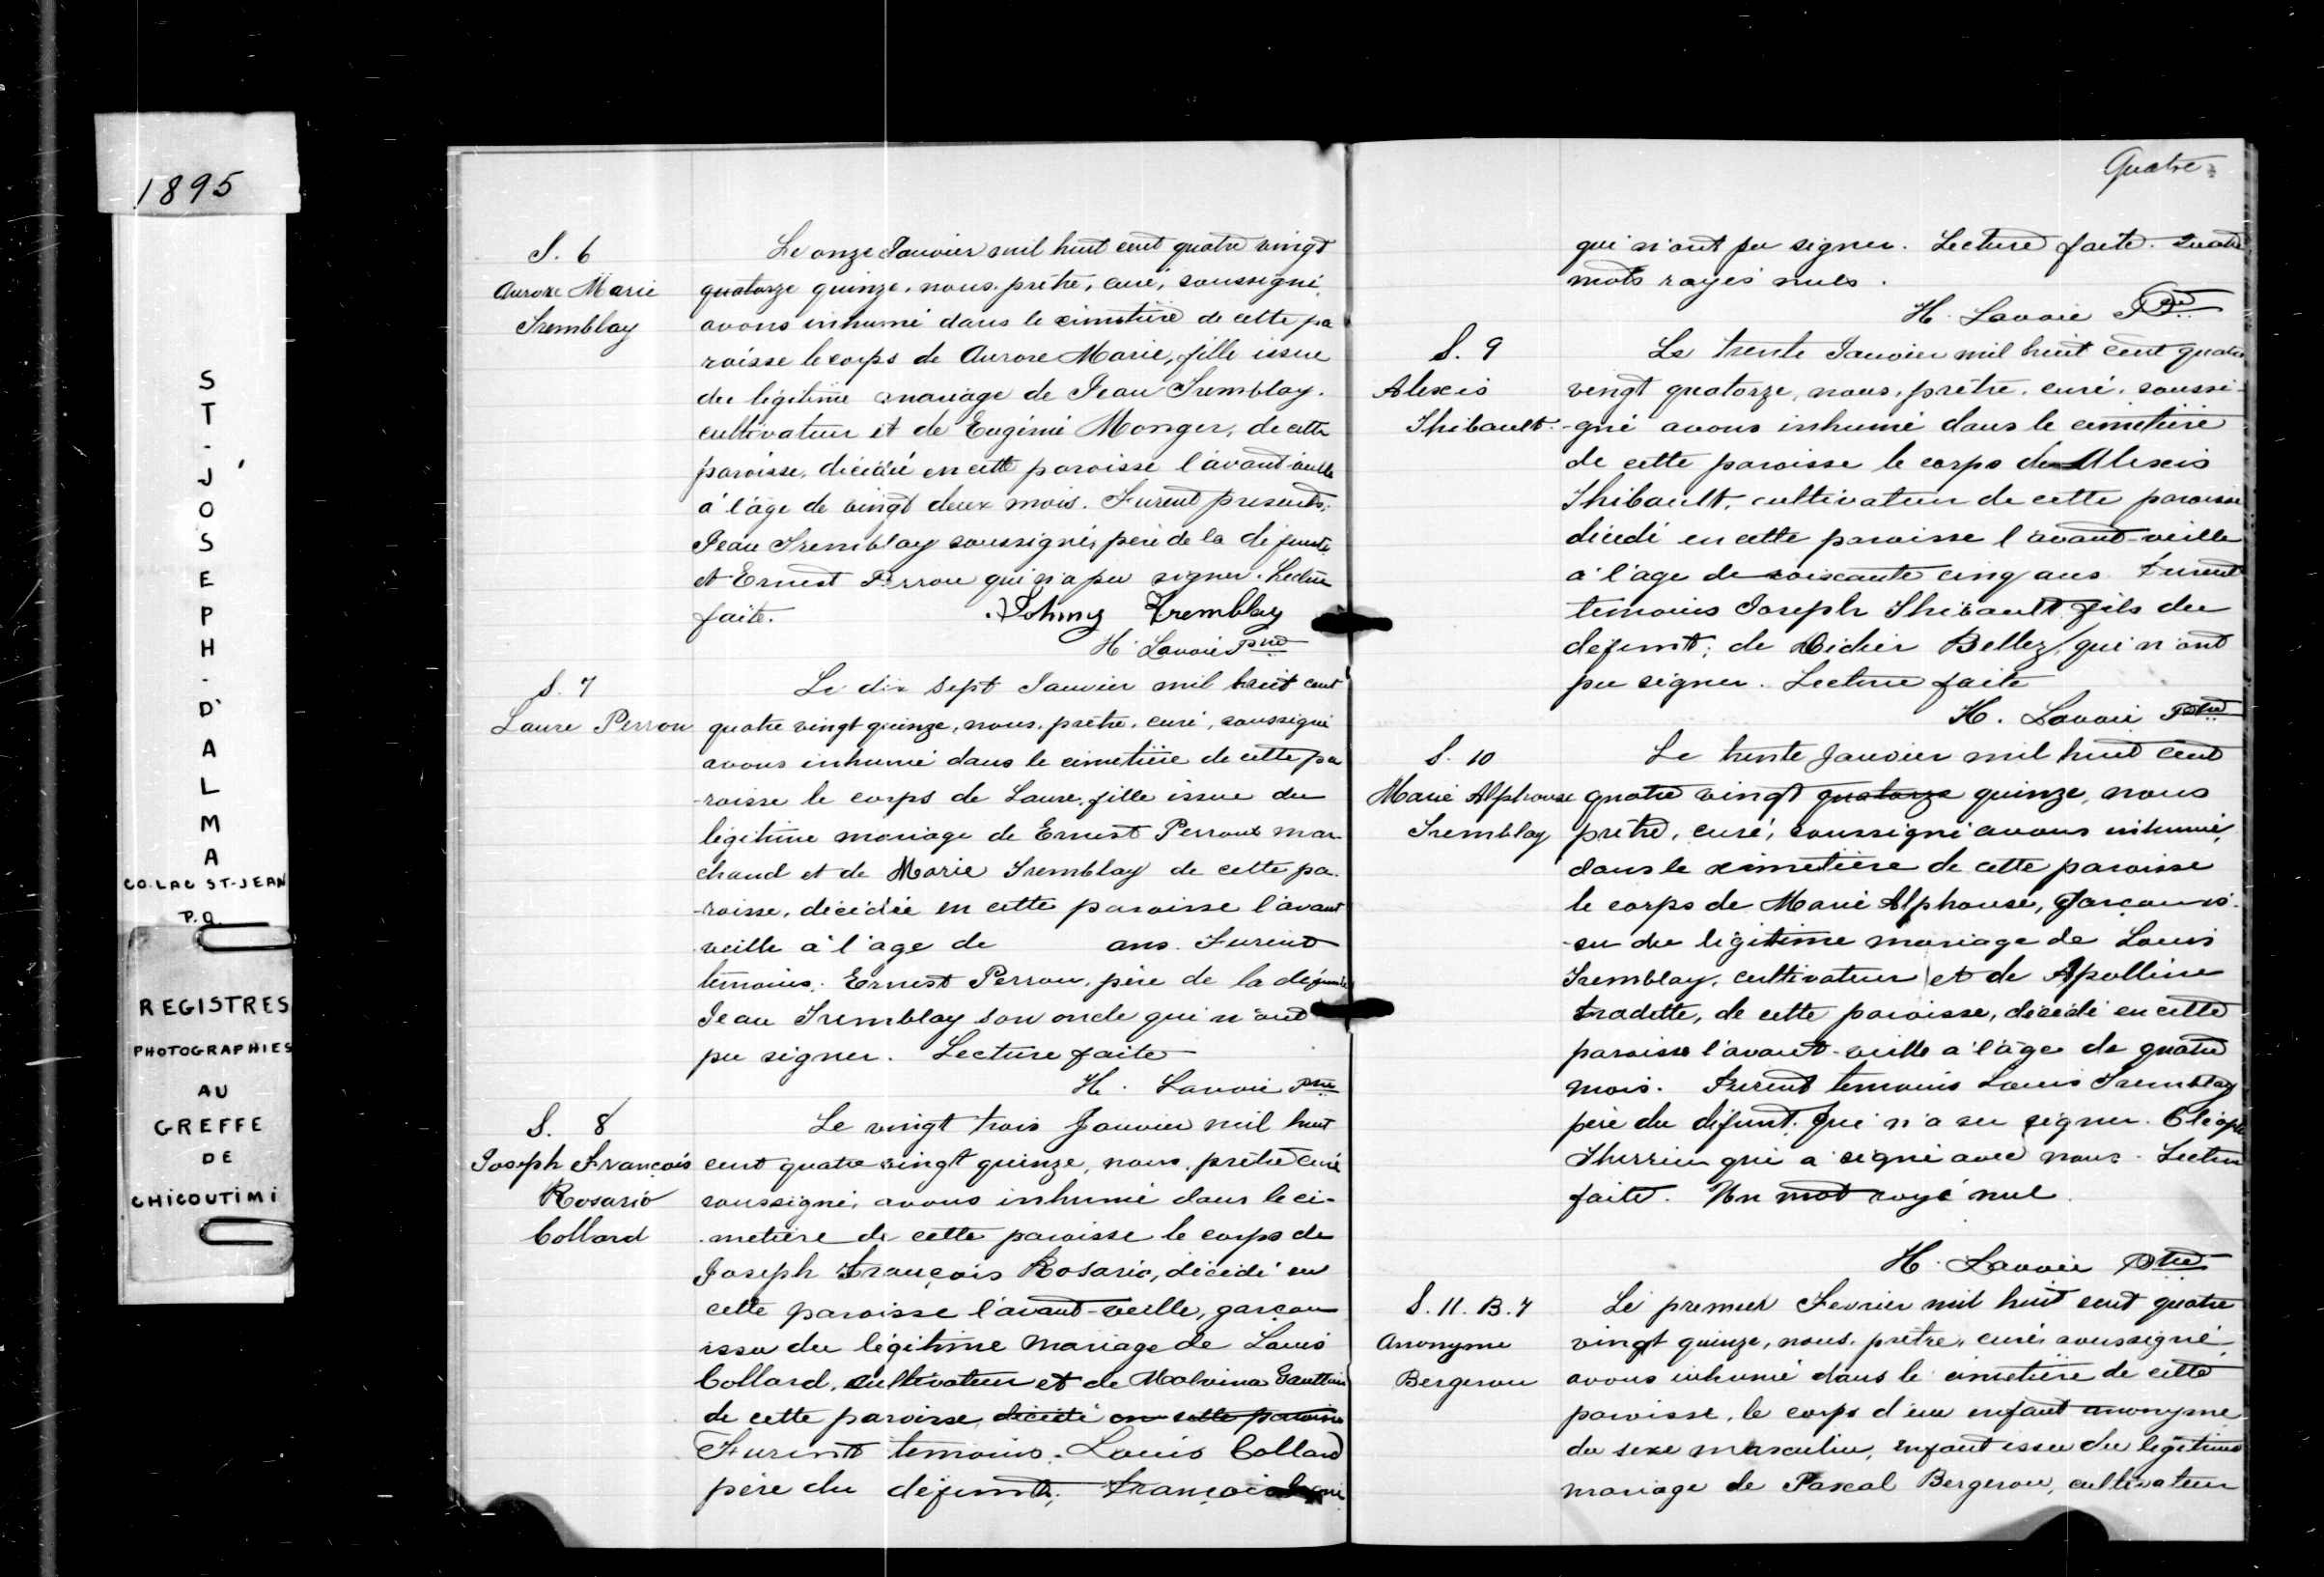 1895
ST-JOSEPH-D'ALMA
CO. LAC ST-JEAN
P.Q.
REGISTRES
PHOTOGRAPHIES
AU
GREFFE
DE
CHICOUTIMI
S. 6
Aurore Marie
Tremblay
Le onze Janvier mil huit cent quatre vingt
quatorze quinze, nous, prêtre, curé, soussigné,
avons inhumé dans le cimetière de cette pa
roisse le corps de Aurore Marie, fille issue
du légitime mariage de Jean Tremblay,
cultivateur et de Eugénie Monger, de cette
paroisse, décédé en cette paroisse l'avant veille
à l'âge de vingt deux mois. Furent présents,
Jean Tremblay soussigné, père de la défunte
et Ernest Perron qui n'a pu signer. Lecture
faite.
Johnny Tremblay
H. Lavoie Ptre
S. 7
Laure Perron
Le dix sept Janvier mil huit cent
quatre vingt quinze, nous, prêtre, curé, soussigné
avons inhumé dans le cimetière de cette pa
-roisse le corps de Laure, fille issue du
légitime mariage de Ernest Perroux mar-
chand et de Marie Tremblay de cette pa-
-roisse, décédée en cette paroisse l'avant
veille à l'âge de ans. Furent
témoins: Ernest Perron, père de la défunte
Jean Tremblay son oncle qui n'ont
pu signer. Lecture faite
H. Lavoie Ptre
S. 8
Joseph François
Rosario
Collard
Le vingt trois Janvier mil huit
cent quatre vingt quinze, nous, prêtre curé
soussigné, avons inhumé dans le ci-
-metière de cette paroisse le corps de
Joseph François Rosario, décédé en
cette paroisse l'avant-veille, garçon
issu du légitime mariage de Louis
Collard, cultivateur et de Malvina Gauthier
de cette paroisse, décédé en cette paroisse
Furent témoins: Louis Collard
père du défunt, François
Quatre
qui n'ont pu signer. Lecture faite. Quatre
mots rayés nuls.
H. Lavoie Ptre
S. 9
Alexis
Thibault.
Le trente Janvier mil huit cent quatre
vingt quatorze, nous, prêtre, curé, soussi-
-gné avons inhumé dans le cimetière
de cette paroisse le corps de Alexis
Thibault, cultivateur de cette paroisse
décédé en cette paroisse l'avant-veille
à l'âge de soixante cinq ans. Furent
témoins Joseph Thibault fils du
défunt; de Didier Bellez qui n'ont
pu signer. Lecture faite
H. Lavoie Ptre
S. 10
Marie Alphonse
Tremblay
Le trente Janvier mil huit cent
quatre vingt quatorze quinze, nous
prêtre, curé, soussigné avons inhumé,
dans le cimetière de cette paroisse
le corps de Marie Alphonse, garçon is-
-su du légitime mariage de Louis
Tremblay, cultivateur et de Apolline
Fradette, de cette paroisse, décédé en cette
paroisse l'avant-veille à l'âge de quatre
mois. Furent témoins Louis Tremblay
père du défunt qui n'a su signer. Cléophe
Therrien qui a signé avec nous. Lecture
faite. Un mot rayé nul.
H. Lavoie Ptre
S. 11. B. 7
Anonyme
Bergeron
Le premier Fevrier mil huit cent quatre
vingt quinze, nous, prêtre, curé, soussigné
avons inhumé dans le cimetière de cette
paroisse, le corps d'un enfant anonyme
du sexe masculin, enfant issu du légitime
mariage de Pascal Bergeron, cultivateur